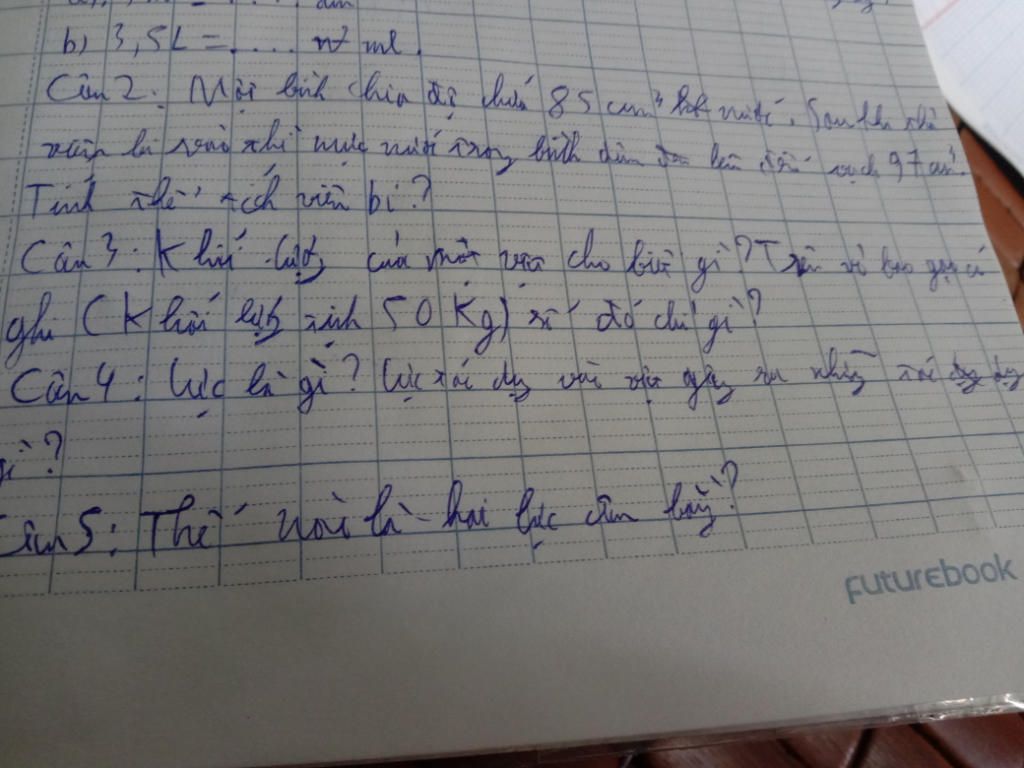 b) 3,5L = .... m³ ml.
Câu 2: Một bình chia độ chứa 85 cm³ nước. Sau khi thả
viên bi vào thì mực nước trong bình dâng lên đến vạch 97 cm³.
Tính thể tích viên bi?
Câu 3: Khối lượng của một vật cho biết gì? Trên vỏ bao gạo có
ghi (Khối lượng tịnh 50 Kg) số đó chỉ gì?
Câu 4: Lực là gì? Lực tác dụng vào vật gây ra những tác dụng
gì?
Câu 5: Thế nào là hai lực cân bằng?
futurebook